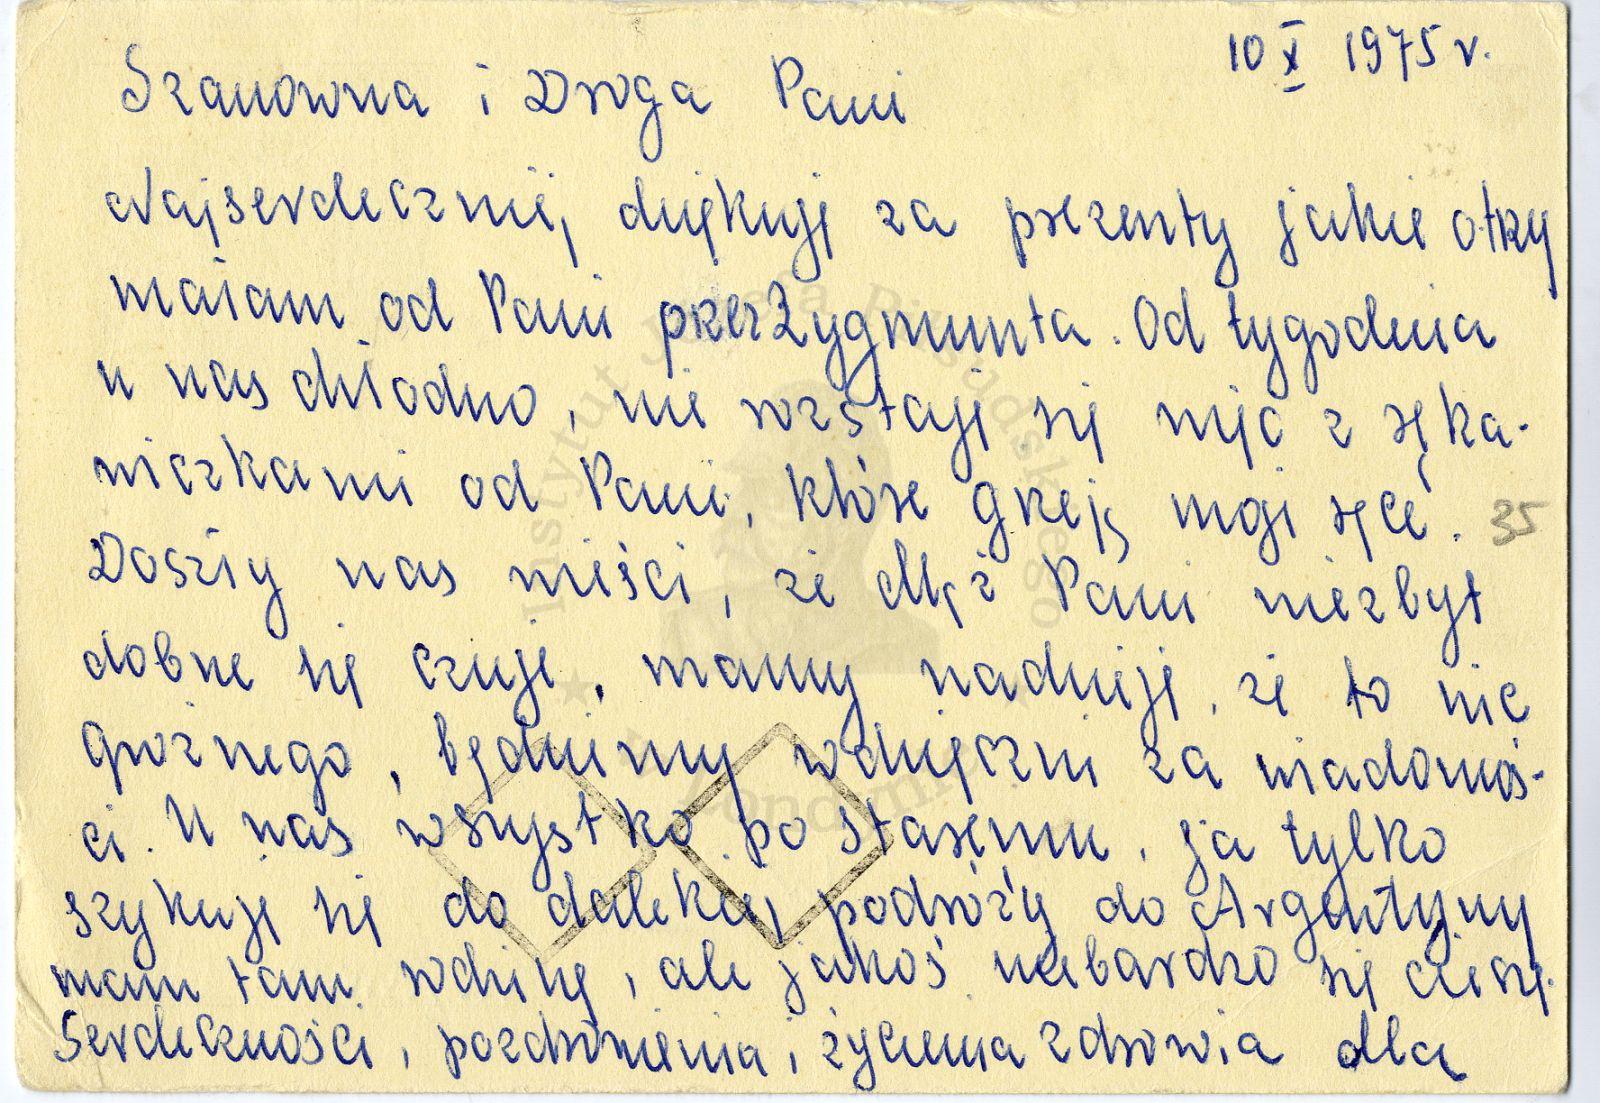 10 X 1975 r.
Szanowna i Droga Pani
Najserdeczniej dziękuję za prezenty jakie otrzy
małam od Pani przez Zygmunta. Od tygodnia
u nas chłodno, nie rozstaję się więc z ręka-
wiczkami od Pani, które grzeją moje ręce.
35
Doszły nas wieści, że Mąż Pani niezbyt
dobrze się czuje, mamy nadzieję, że to nic
groźnego, będziemy wdzięczni za wiadomoś-
ci. U nas wszystko po staremu, ja tylko
szykuję się do dalekiej podróży do Argentyny
mam tam rodzinę, ale jakoś niebardzo się cieszę.
Serdeczności, pozdrowienia i życzenia zdrowia dla
Instytut Józefa Piłsudskiego
w Londynie